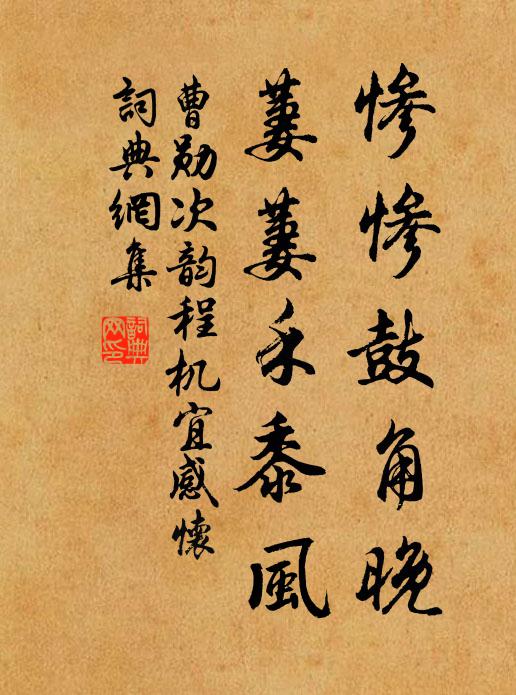 慘慘鼓角晚
萋萋禾黍風
曹勋次韵程机宜感懷
詞典網集
詞典网印